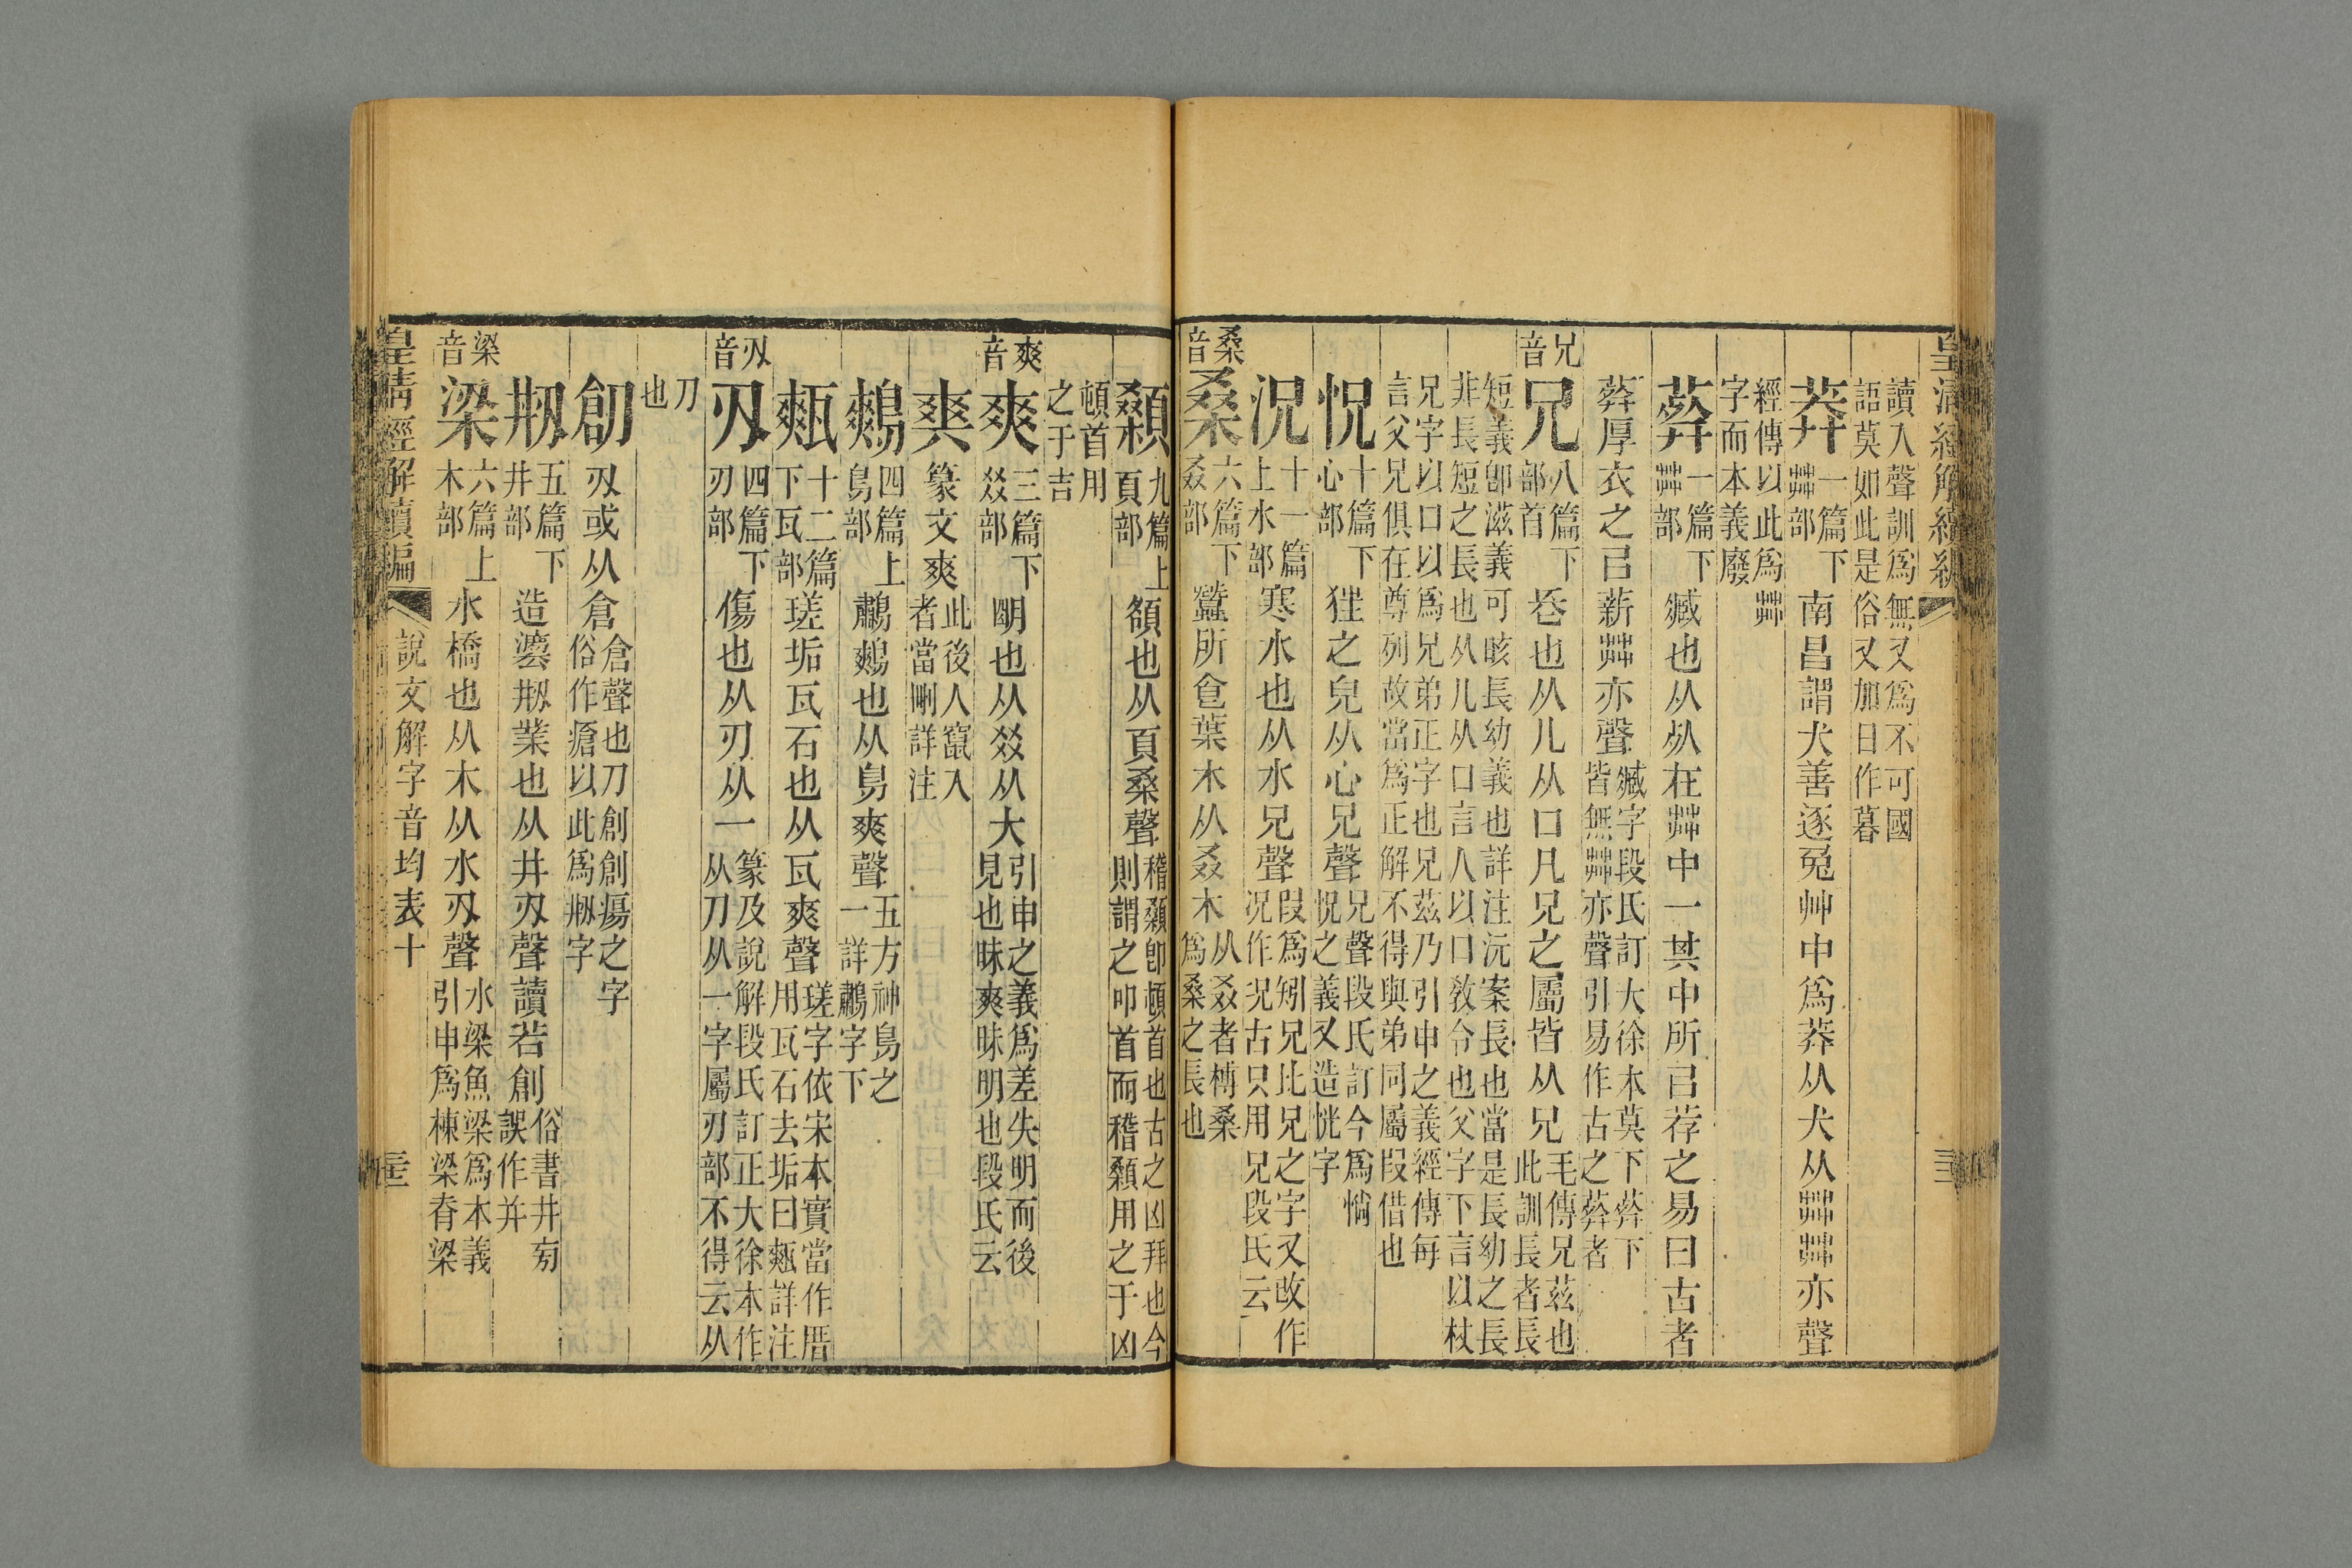 皇清經解續編
讀入聲訓爲無又爲不可國
語莫如此是俗又加日作暮
莽 一篇下艸部 南昌謂犬善逐兔艸中爲莽从犬从茻茻亦聲
經傳以此爲茻
字而本義廢
葬 一篇下茻部 臧也从死在茻中一其中所㠯荐之易曰古者
葬厚衣之㠯薪茻亦聲 臧字段氏訂大徐本莫下葬下皆無茻亦聲引易作古之葬者
兄音
兄 八篇下部首 長也从儿从口凡兄之屬皆从兄 毛傳兄茲也此訓長者長
短義卽滋義可晐長幼義也詳注沅案長也當是長幼之長
非長短之長也从儿从口言人以口敎令也父字下言以杖
兄字以口以爲兄弟正字也兄茲乃引申之義經傳每
言父兄俱在尊列故當爲正解不得與弟同屬叚借也
怳 十篇下心部 狂之皃从心兄聲 兄聲段氏訂今爲惝怳之義又造恍字
況 十一篇上水部 寒水也从水兄聲 叚爲矧兄比兄之字又改作況作况古只用兄段氏云
桑音
桑 六篇下叒部 蠶所食葉木从叒木 从叒者榑桑爲桑之長也
顙 九篇上頁部 頟也从頁桑聲 稽顙卽頓首也古之凶拜也今則謂之叩首而稽顙用之于凶
頓首用
之于吉
爽音
爽 三篇下㸚部 朙也从㸚从大 引申之義爲差失明而後見也昧爽昧明也段氏云
爽 篆文爽 此後人竄入者當刪詳注
鷞 四篇上鳥部 鷫鷞也从鳥爽聲 五方神鳥之一詳鷫字下
甐 十二篇下瓦部 瑳垢瓦石也从瓦爽聲 瑳字依宋本實當作厝用瓦石去垢曰甐詳注
刅音
刅 四篇下刃部 傷也从刃从一 篆及說解段氏訂正大徐本作从刀从一字屬刃部不得云从
刀
也
創 刅或从倉 倉聲也刀創創瘍之字俗作瘡以此爲刱字
刱 五篇下井部 造灋刱業也从井刅聲讀若創 俗書井旁誤作幷
梁音
梁 六篇上木部 水橋也从木从水刅聲 水梁魚梁爲本義引申爲棟梁脊梁
皇清經解續編 說文解字音均表十